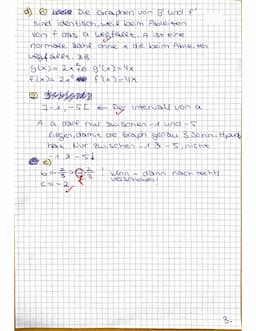 d) ① Die Graphen von g' und f'
sind identisch, weil beim Ableiten
von f das a wegfällt. A ist eine
normale Zahl ohne x die beim Ableiten
wegfällt. zB.
g(x) = 2x²+8 g'(x) = 4x
f(x) = 2x² f'(x) = 4x
②
]-1, -5[ ← Der Intervall von a
A a darf nur zwischen -1 und -5
liegen, damit der Graph genau 3
hat. Nur zwischen -1 & -5, nicht
-1 & -5!
e)
b = 2/3 wenn - dann nach rechts
verschieben!
c = -2
3.